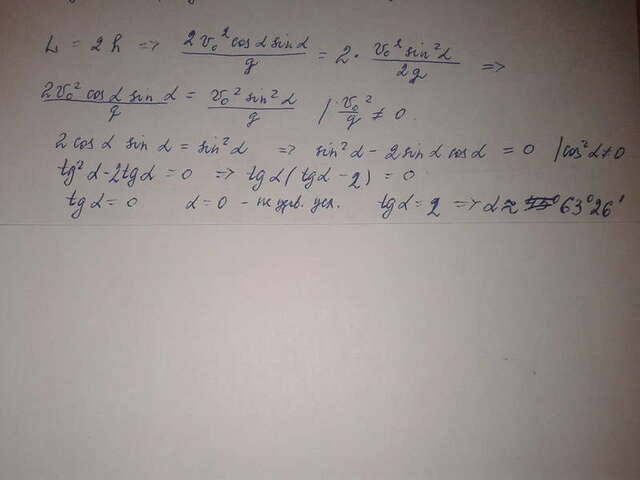 L = 2h => 2v₀² cos α sin α / g = 2 · v₀² sin² α / 2g =>
2v₀² cos α sin α / g = v₀² sin² α / g | v₀² / g ≠ 0.
2 cos α sin α = sin² α => sin² α - 2 sin α cos α = 0 | cos² α ≠ 0
tg² α - 2 tg α = 0 => tg α (tg α - 2) = 0
tg α = 0 α = 0 - не удв. усл. tg α = 2 => α ≈ 63° 26'